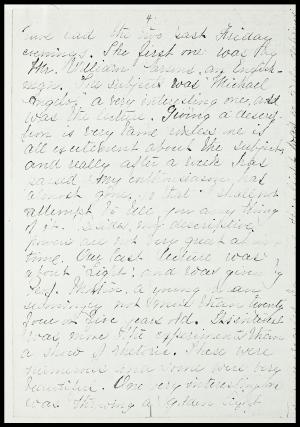 4
and the two last Friday
evenings. The first one was by
Mr. William Parsons, an English-
man. The subject was "Michael
Angelo," a very interesting one, and
was the lecture. Giving a descrip-
tion is very tame unless one is
all excitement about the subject,
and really after a week has
passed my enthusiasm has
almost gone, so that I shall not
attempt to tell you any thing
of it. Besides, my descriptive
powers are not very great at any
time. Our last lecture was
about "Light", and was given by
Prof. a young man
seemingly not more than twenty
four or five years old. His lecture
was more of experiments than
a show of rhetoric. These were
numerous and some were very
beautiful. One very interesting one
was throwing a golden light